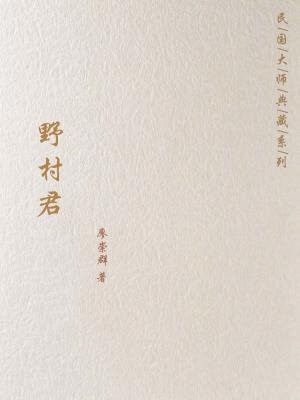 民|国|大|师|典|藏|系|列
野村君
廖崇群 著